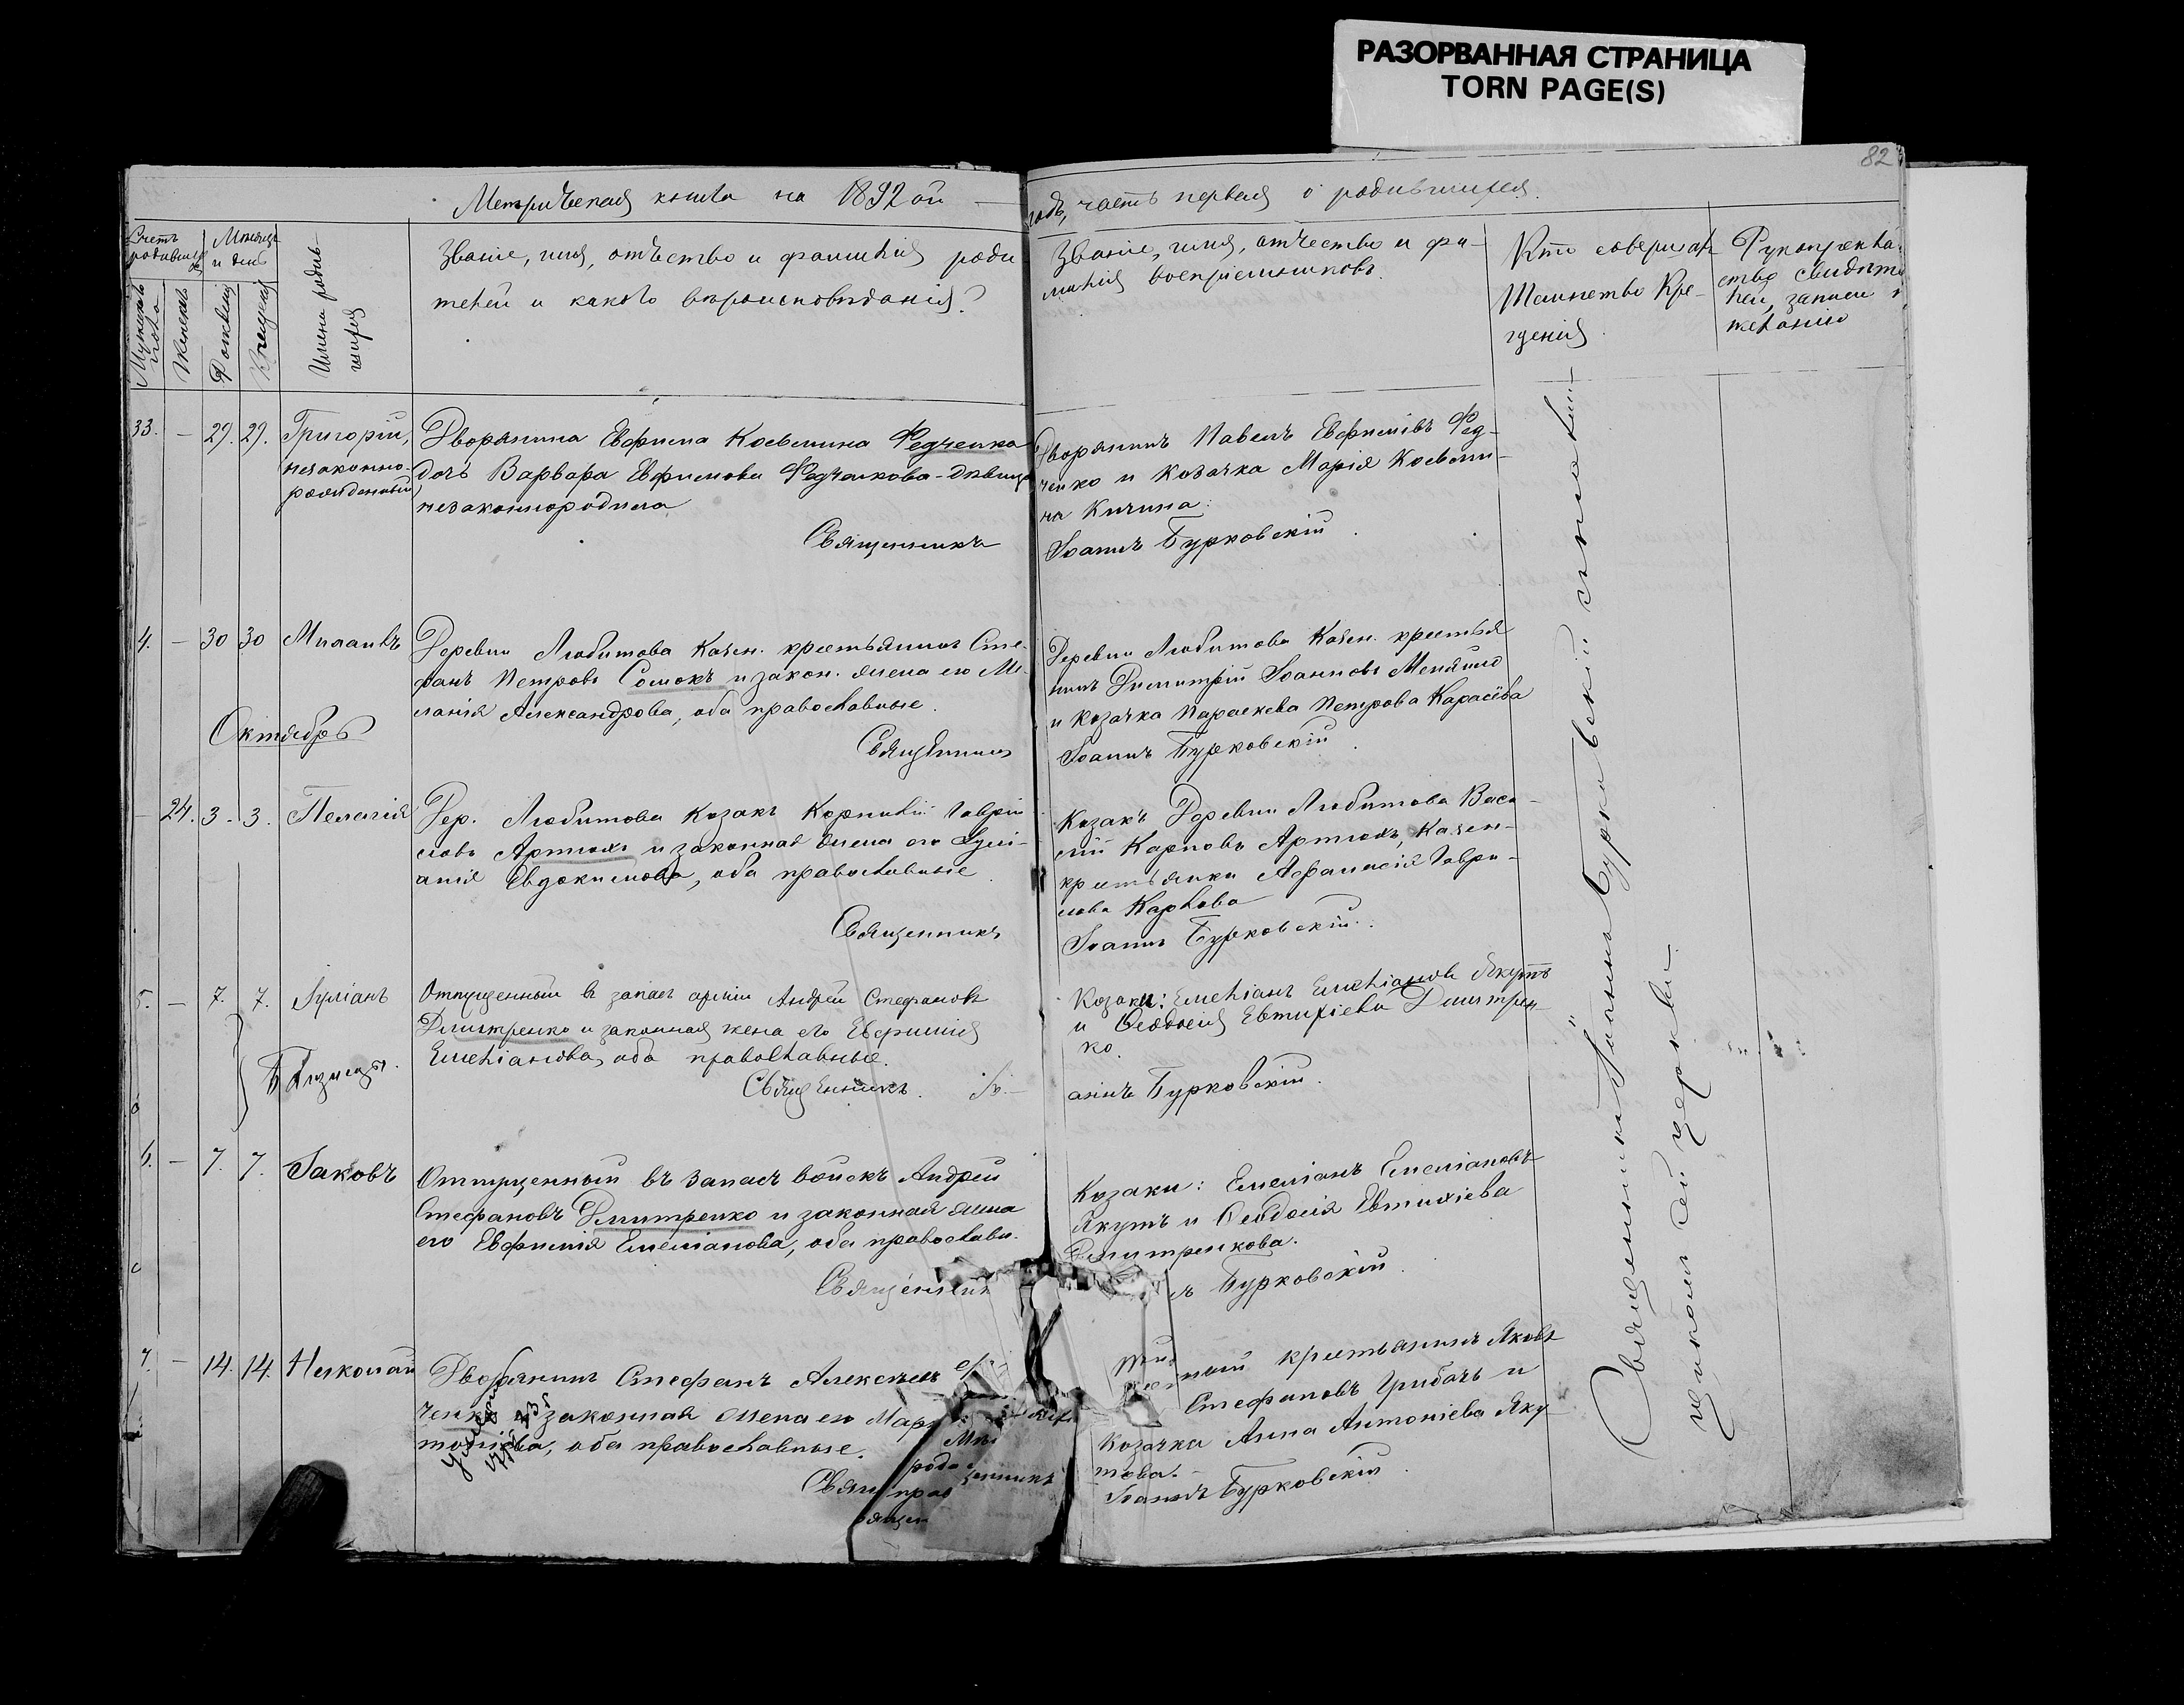 РАЗОРВАННАЯ СТРАНИЦА
TORN PAGE(S)
82
Метрическая книга на 1892 ой
годъ, часть первая о родившихся.
Счетъ родившихся
Мужеска пола
Женска
Мѣсяцъ и день
Рожденія
Крещенія
Имена родившихся
Званіе, имя, отчество и фамилія роди
телей и какого вѣроисповѣданія?
Званіе, имя, отчество и фа-
милія воспріемниковъ.
Кто совершалъ
Таинство Кре-
щенія
Рукоприкла
ство свидѣте
лей, записи
желанію
33. — 29. 29. Григорій,
незаконно-
рожденный
Дворянина Ефима Косьмина Федченка
дочь Варвара Ефимова Федченкова-дѣвица
незаконнородила
Священникъ
Дворянинъ Павелъ Ефимовъ Фед-
ченко и козачка Марія Косьми-
на Кичина.
Іоаннъ Бурковскій
4. — 30 30 Михаилъ
Деревни Любитова Казен. крестьянинъ Сте-
фанъ Петровъ Сомокъ и закон. жена его Ме-
ланія Александрова, оба православные.
Священникъ
Деревни Любитова Казен. крестья
нинъ Димитрій Іоанновъ Меняйло
и козачка Параскева Петрова Карасёва
Іоаннъ Бурковскій
Октябрь
— 24. 3. 3. Пелагія
Дер. Любитова Козакъ Корнилій Гаврі
ловъ Артюхъ и законная жена его Іулі-
анія Евдокимова, оба православные
Священникъ
Козакъ Деревни Любитова Васи-
лій Карповъ Артюхъ, Казен-
крестьянка Афанасія Гаври-
лова Карпова
Іоаннъ Бурковскій.
5. — 7. 7. Іуліанъ
Отпущенный въ запасъ арміи Андрей Стефановъ
Дмитренко и законная жена его Евфимія
Емеліанова, оба православные.
Священникъ. Іо-
Козаки: Емеліанъ Емеліановъ Якутъ
и Ѳеодосія Евтихіева Дмитрен-
ко.
аннъ Бурковскій.
Близнецы.
6. — 7. 7. Іаковъ
Отпущенный въ запасъ войскъ Андрей
Стефановъ Дмитренко и законная жена
его Евфимія Емеліанова, оба православн.
Священник
Козаки: Емеліанъ Емеліановъ
Якутъ и Ѳеодосія Евтихіева
Дмитренкова.
ъ Бурковскій.
7. — 14. 14. Николай
Дворянинъ Стефанъ Алексѣевъ
ченко и законная жена его Мар
тоніева, оба православные.
Свящ
щенникъ
крестьянинъ Яковъ
Стефановъ Грибачъ и
Козачка Анна Антоніева Яку-
това.
Іоаннъ Бурковскій
Священникъ Іоаннъ Бурковскій съ псаломщикомъ
сей церкви